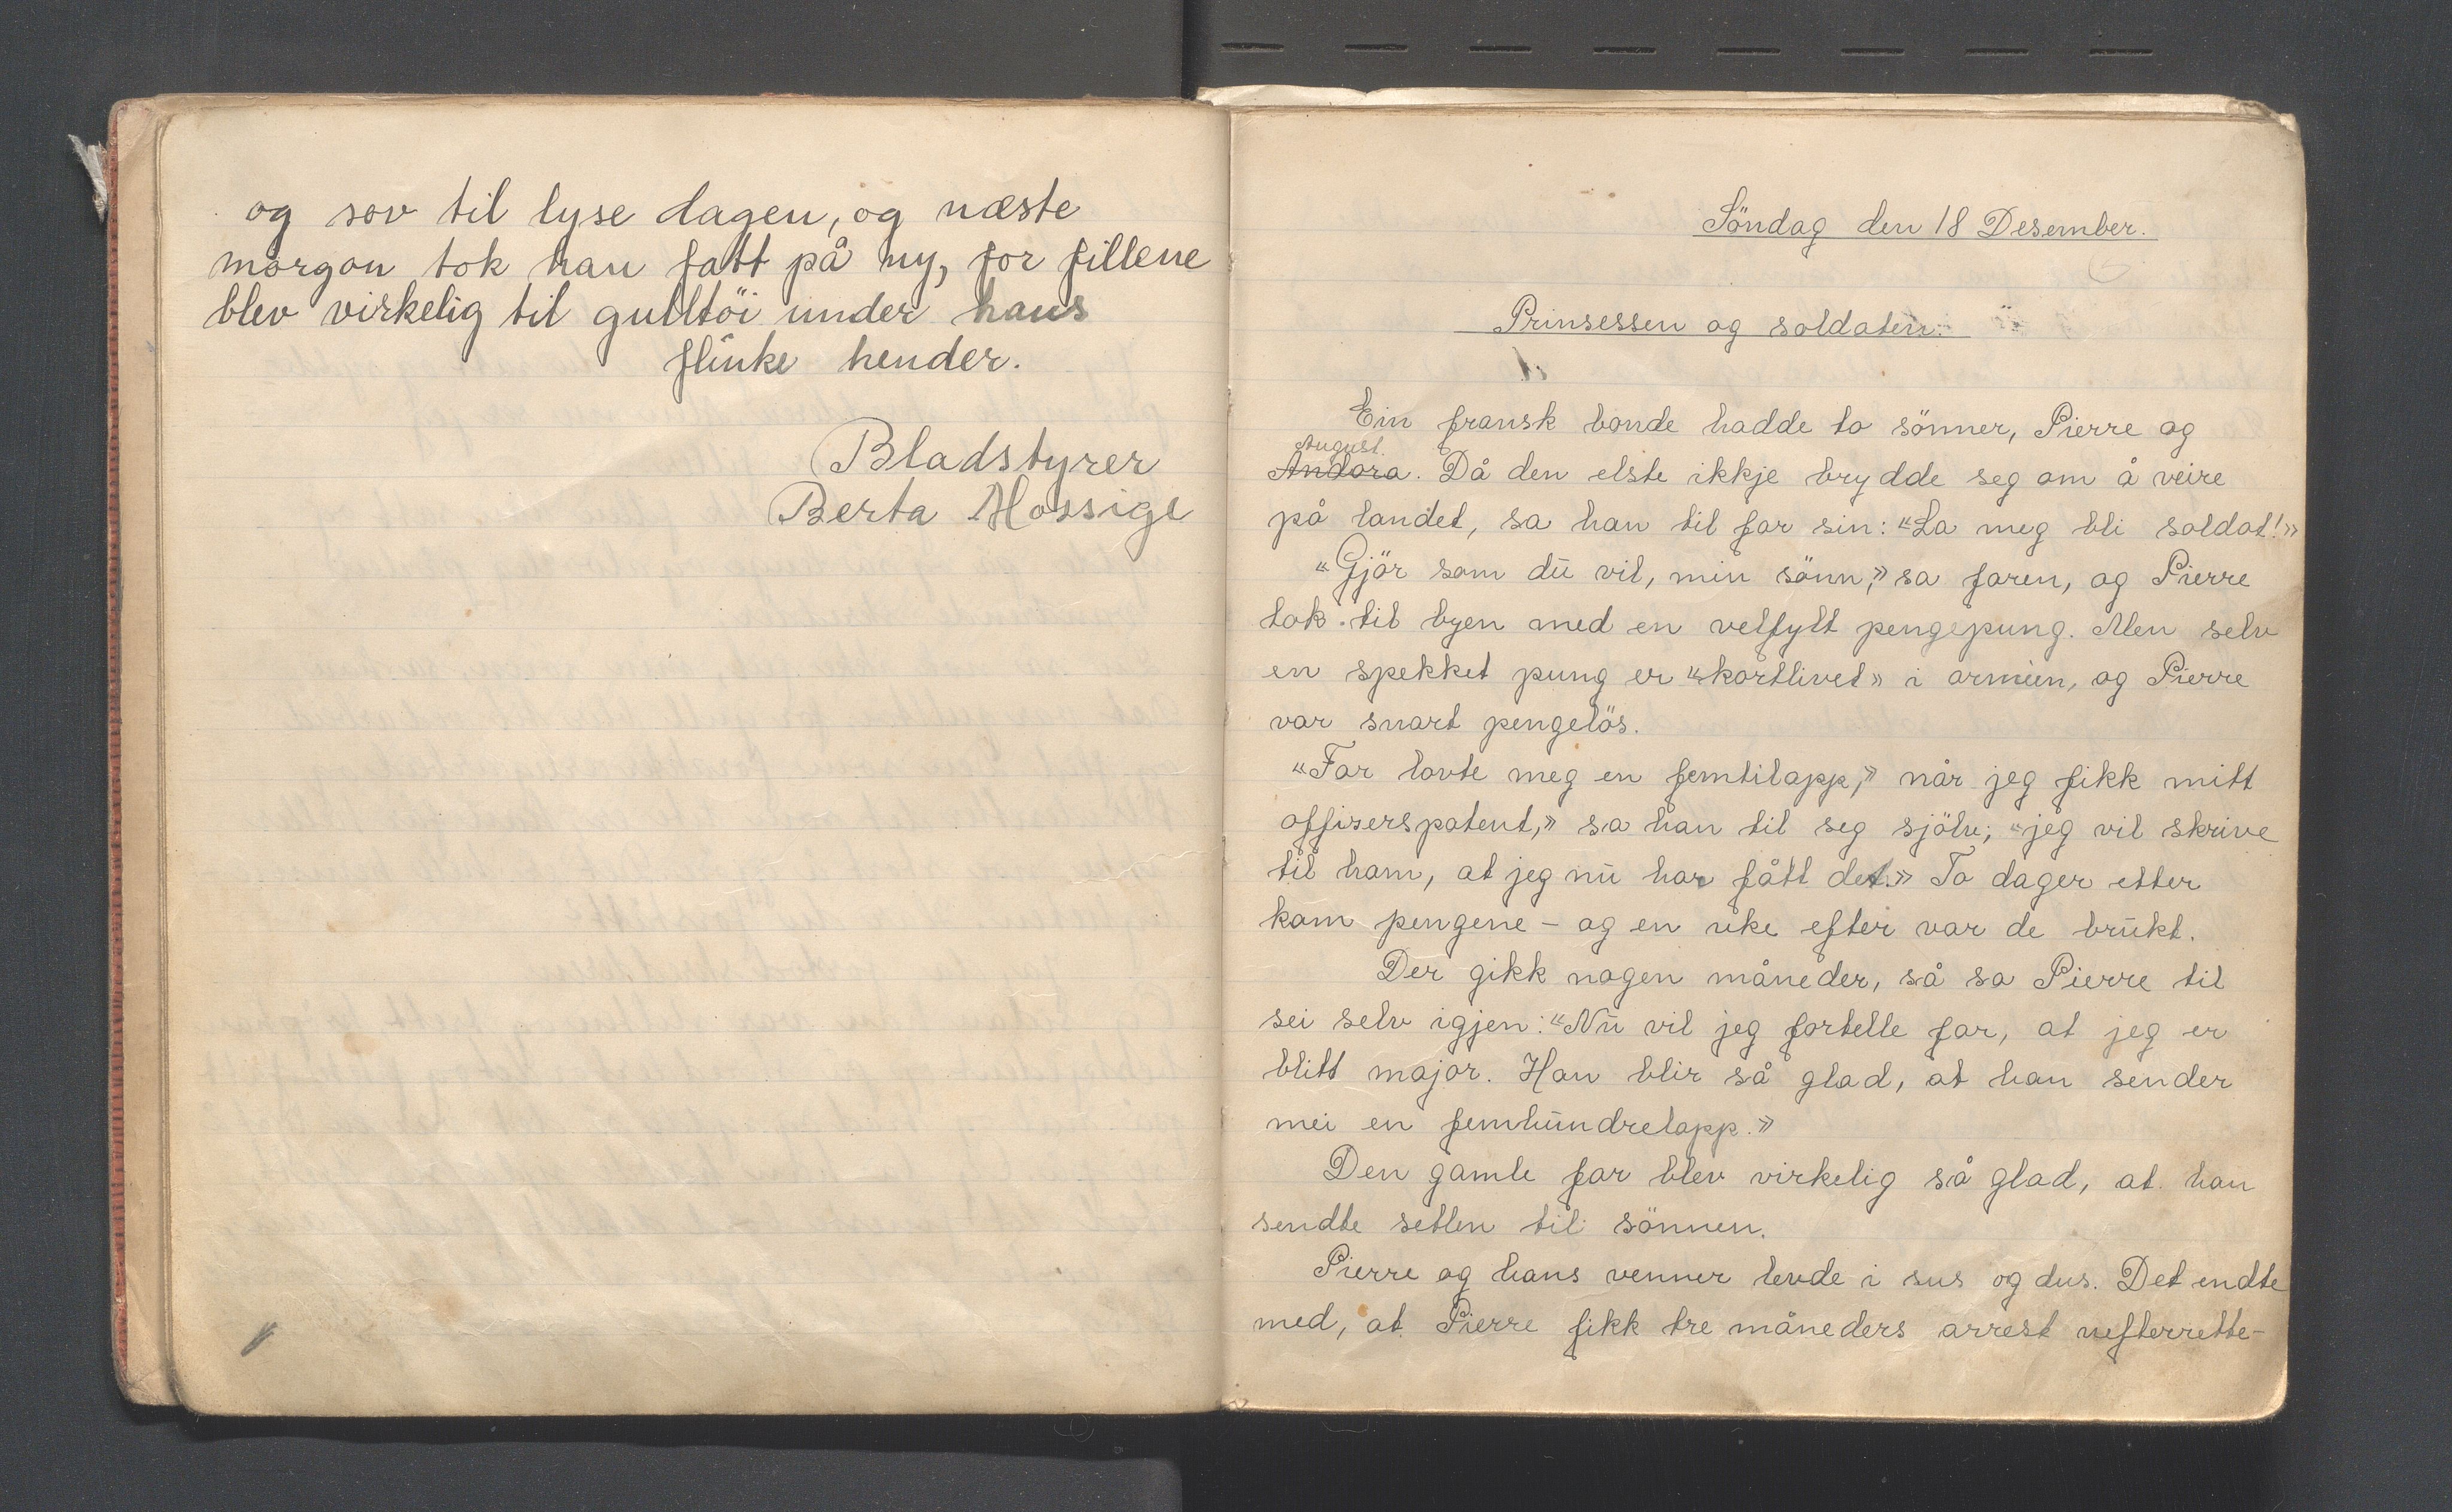 og sov til lyse dagen, og næste
morgon tok han fatt på ny, for fillene
blev virkelig til gulltöi under hans
flinke hender.
Bladstyrer
Berta Mossige
Söndag den 18 Desember.
Prinsessen og soldaten.
Ein fransk bonde hadde to sönner, Pierre og
August.
Andora. Då den elste ikkje brydde seg om å veire
på landet, sa han til far sin: "La meg bli soldat!"
"Gjör som du vil, min sönn," sa faren, og Pierre
tok til byen med en velfylt pengepung. Men selv
en spekket pung er "kortlivet" i armeen, og Pierre
var snart pengelös.
"Far lovte meg en femtilapp," når jeg fikk mitt
offiserspatent," sa han til seg sjölv; "jeg vil skrive
til ham, at jeg nu har fått det." To dager etter
kom pengene - og en uke efter var de brukt.
Der gikk nogen måneder, så sa Pierre til
sei selv igjen: "Nu vil jeg fortelle far, at jeg er
blitt major. Han blir så glad, at han sender
mei en femhundrelapp."
Den gamle far blev virkelig så glad, at han
sendte setlen til sönnen.
Pierre og hans venner levde i sus og dus. Det endte
med, at Pierre fikk tre måneders arrest uefterrette-